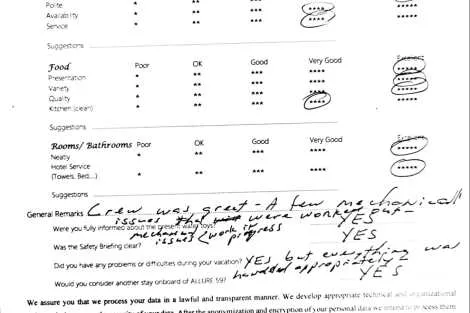 Polite * ** *** **** *****
Availability * ** *** **** *****
Service * ** *** ****
Suggestions
Food Poor OK Good Very Good Excellent
Presentation * ** *** **** *****
Variety * ** *** **** *****
Quality * ** *** **** *****
Kitchen (clean) * ** *** **** *****
Suggestions
Rooms/Bathrooms Poor OK Good Very Good Excellent
Neatly * ** *** **** *****
Hotel Service
(Towels, Bed...) * ** *** **** *****
Suggestions
General Remarks Crew was great - A few mechanical
issues that were worked out -
Were you fully informed about the present water toys? YES
mechanical issues < work in progress
Was the Safety Briefing clear? YES
Did you have any problems or difficulties during your vacation? YES, but everything was
handled appropriately
Would you consider another stay onboard of ALLURE 59? YES
We assure you that we process your data in a lawful and transparent manner. We develop appropriate technical and organizational
After the anonymization and encryption of your personal data we intend to process them